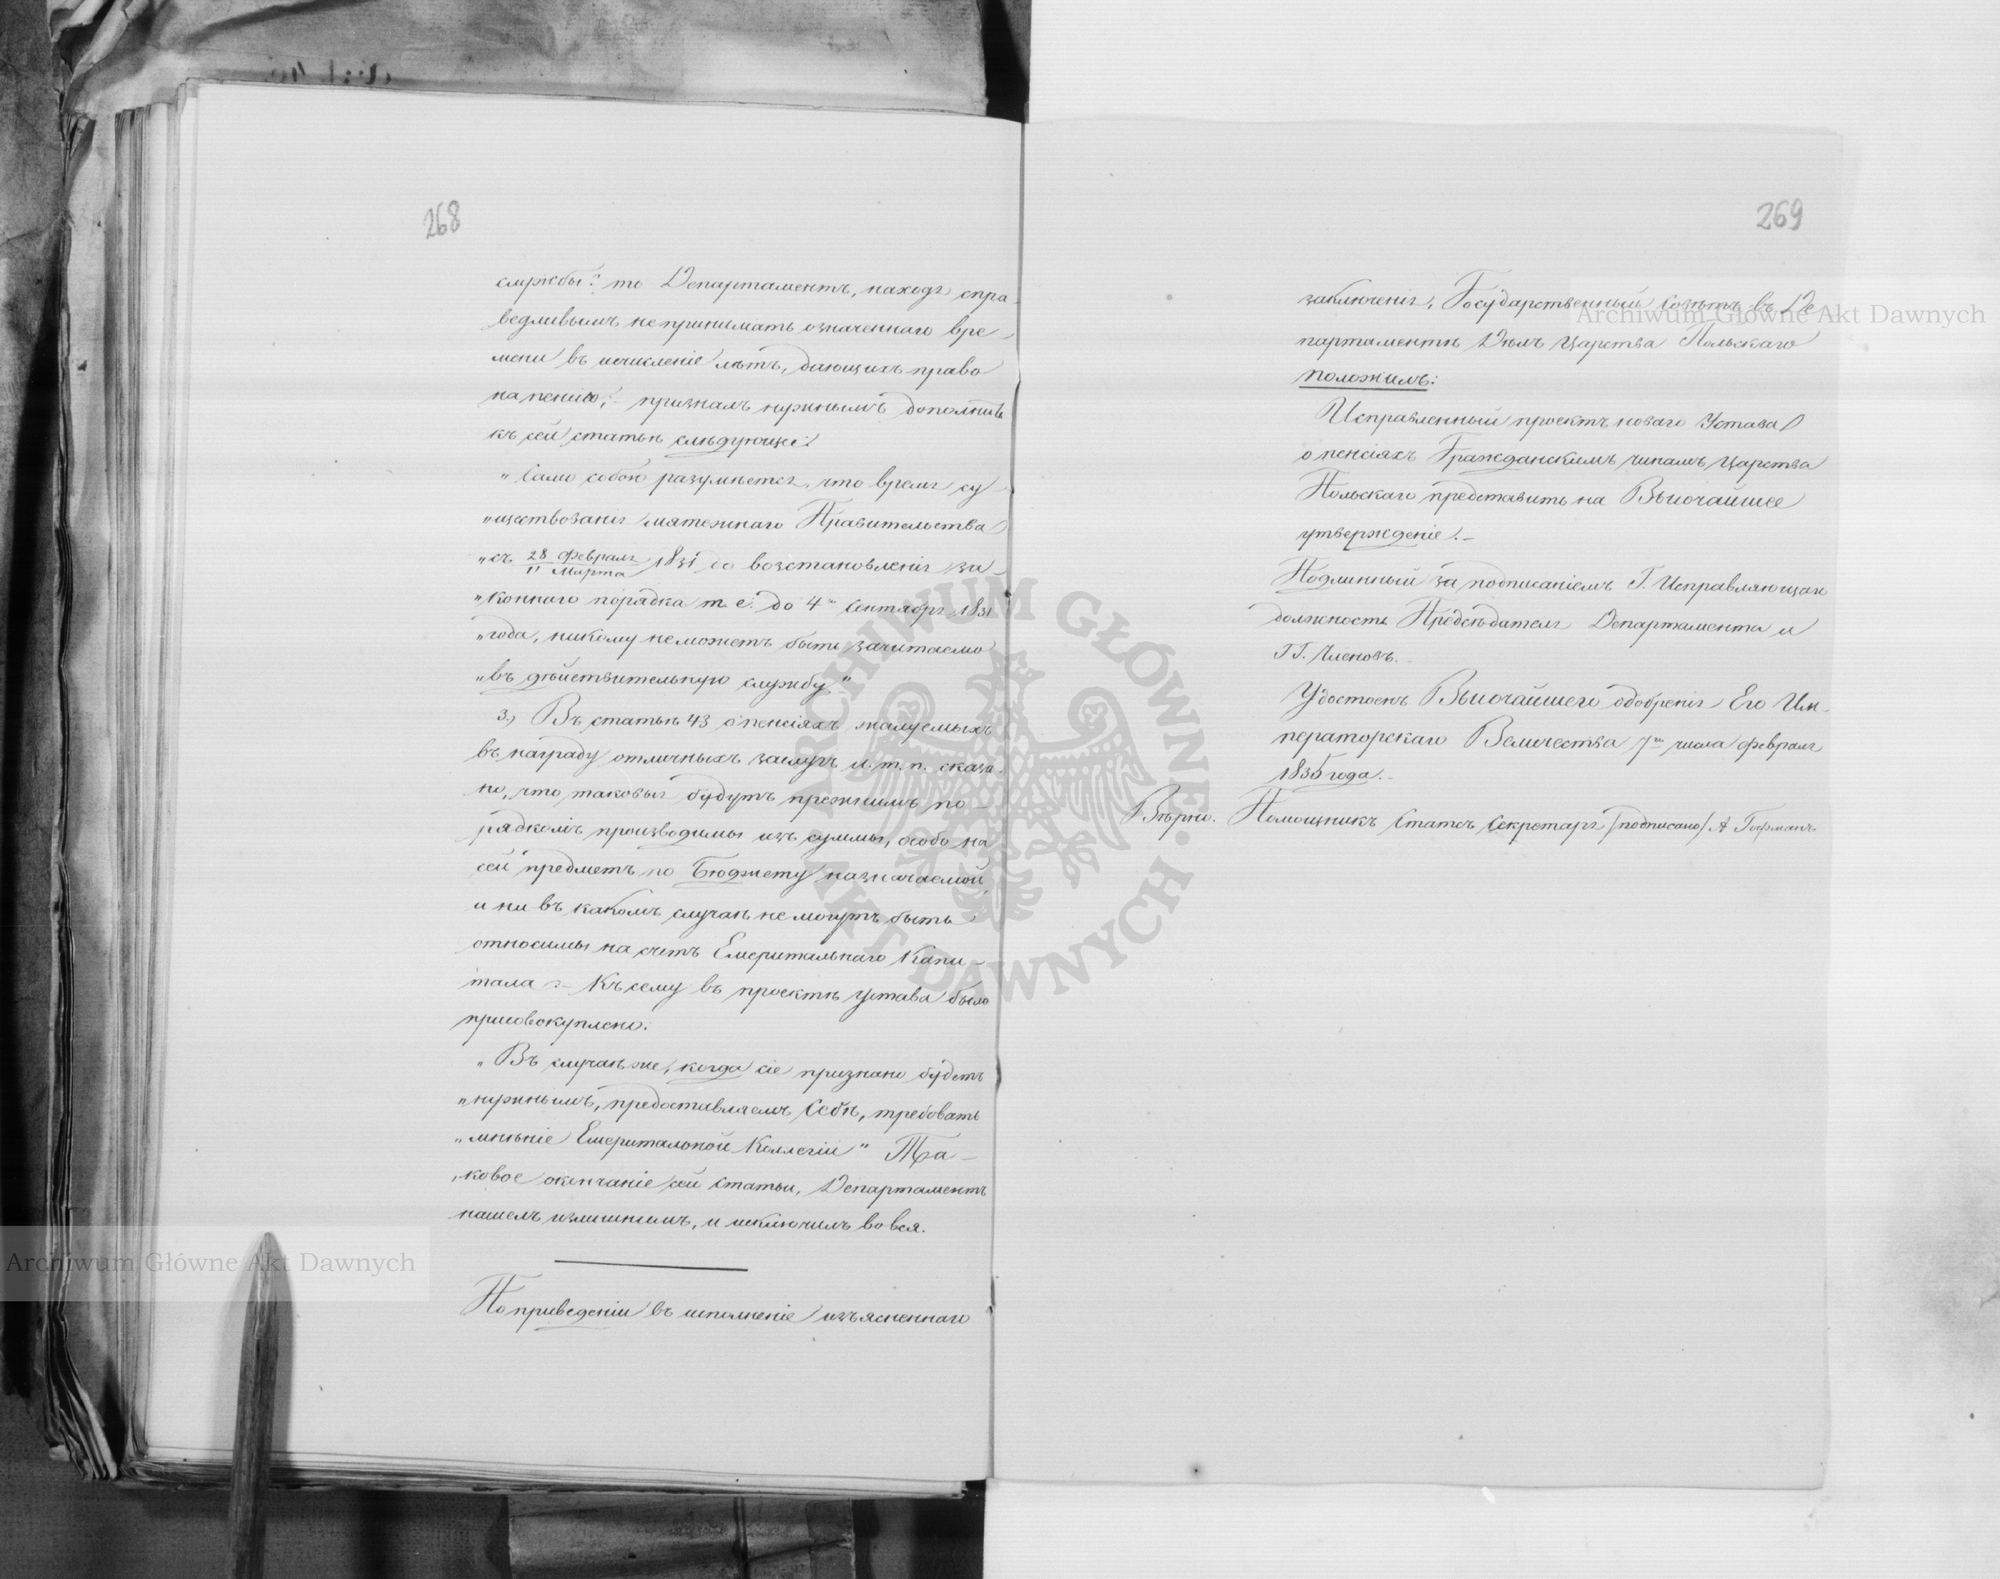 268
службы? то Департаментъ, находя спра-
ведливымъ не принимать означеннаго вре-
мени въ исчисленіе лѣтъ, дающихъ право
на пенсію, признавъ нужнымъ дополнить
къ сей статьѣ слѣдующее:
„Само собою разумѣется, что время су-
„ществованія мятежнаго Правительства
„съ 28 Февраля / 11 Марта 1831 до возстановленія за-
„коннаго порядка т. е. до 4го Сентября 1831
„года, никому не можетъ быть зачитаемо
„въ дѣйствительную службу“
3.) Въ статьѣ 43 о пенсіяхъ жалуемыхъ
въ награду отличныхъ заслугъ и. т. п. сказа-
но, что таковыя будутъ прежнимъ по-
рядкомъ производимы изъ суммы, особо на
сей предметъ по Бюджету назначаемой,
и ни въ какомъ случаѣ не могутъ быть
относимы на счетъ Емеритальнаго Капи-
тала. – Къ сему въ проектѣ устава было
присовокуплено:
„Въ случаѣ же, когда сіе признано будетъ
„нужнымъ, предоставляемъ Себѣ, требовать
„мнѣніе Емеритальной Коллегіи“ Та-
ковое окончаніе сей статьи, Департаментъ
нашелъ излишнимъ, и исключилъ вовся.
По приведеніи въ исполненіе изъясненнаго
269
заключенія, Государственный Совѣтъ въ Де
партаментѣ Дѣлъ Царства Польскаго
положилъ:
Исправленный проектъ новаго Устава
о пенсіяхъ Гражданскимъ чинамъ Царства
Польскаго представить на Высочайшее
утвержденіе. –
Подлинный за подписаніемъ Г. Исправляющаго
должность Предсѣдателя Департамента и
ГГ. Членовъ.
Удостоенъ Высочайшаго одобренія Его Им-
ператорскаго Величества 7го числа Февраля
1835 года. –
Вѣрно. Помощникъ Статсъ Секретаря /подписано/ А Гофманъ
Archiwum Główne Akt Dawnych
Archiwum Główne Akt Dawnych
ARCHIWUM GŁÓWNE AKT DAWNYCH